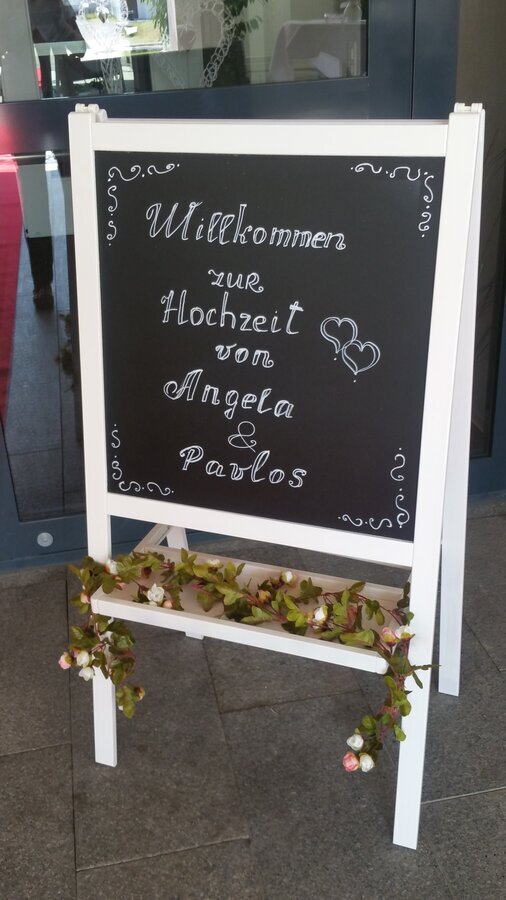 Willkommen
zur
Hochzeit
von
Angela
&
Pavlos